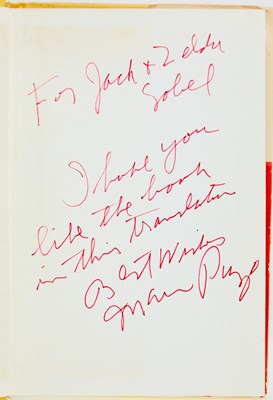 For Jack + Zelda
Sobel
I hope you
like the book
in this translation
Best Wishes
Mario Puzo